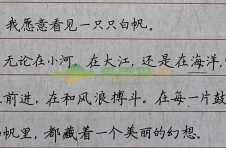 我愿意看见一只只白帆。
无论在小河，在大江，还是在海洋，
前进，在和风浪搏斗。在每一片鼓
帆里，都藏着一个美丽的幻想。